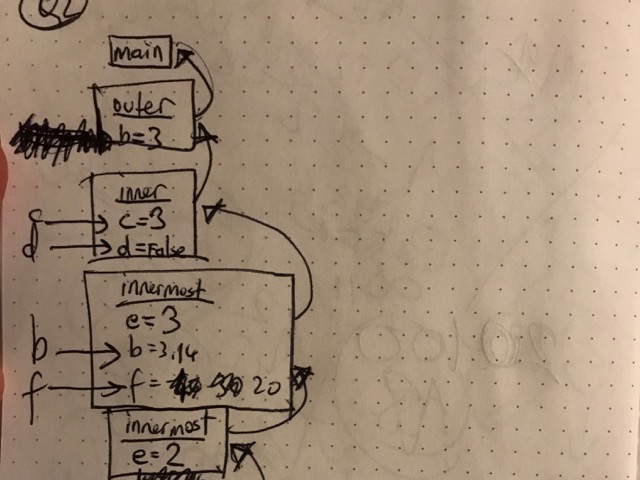 Q2
main
outer
b=3
inner
c c=3
d d=False
innermost
e=3
b b=3.14
f f= 20
innermost
e=2